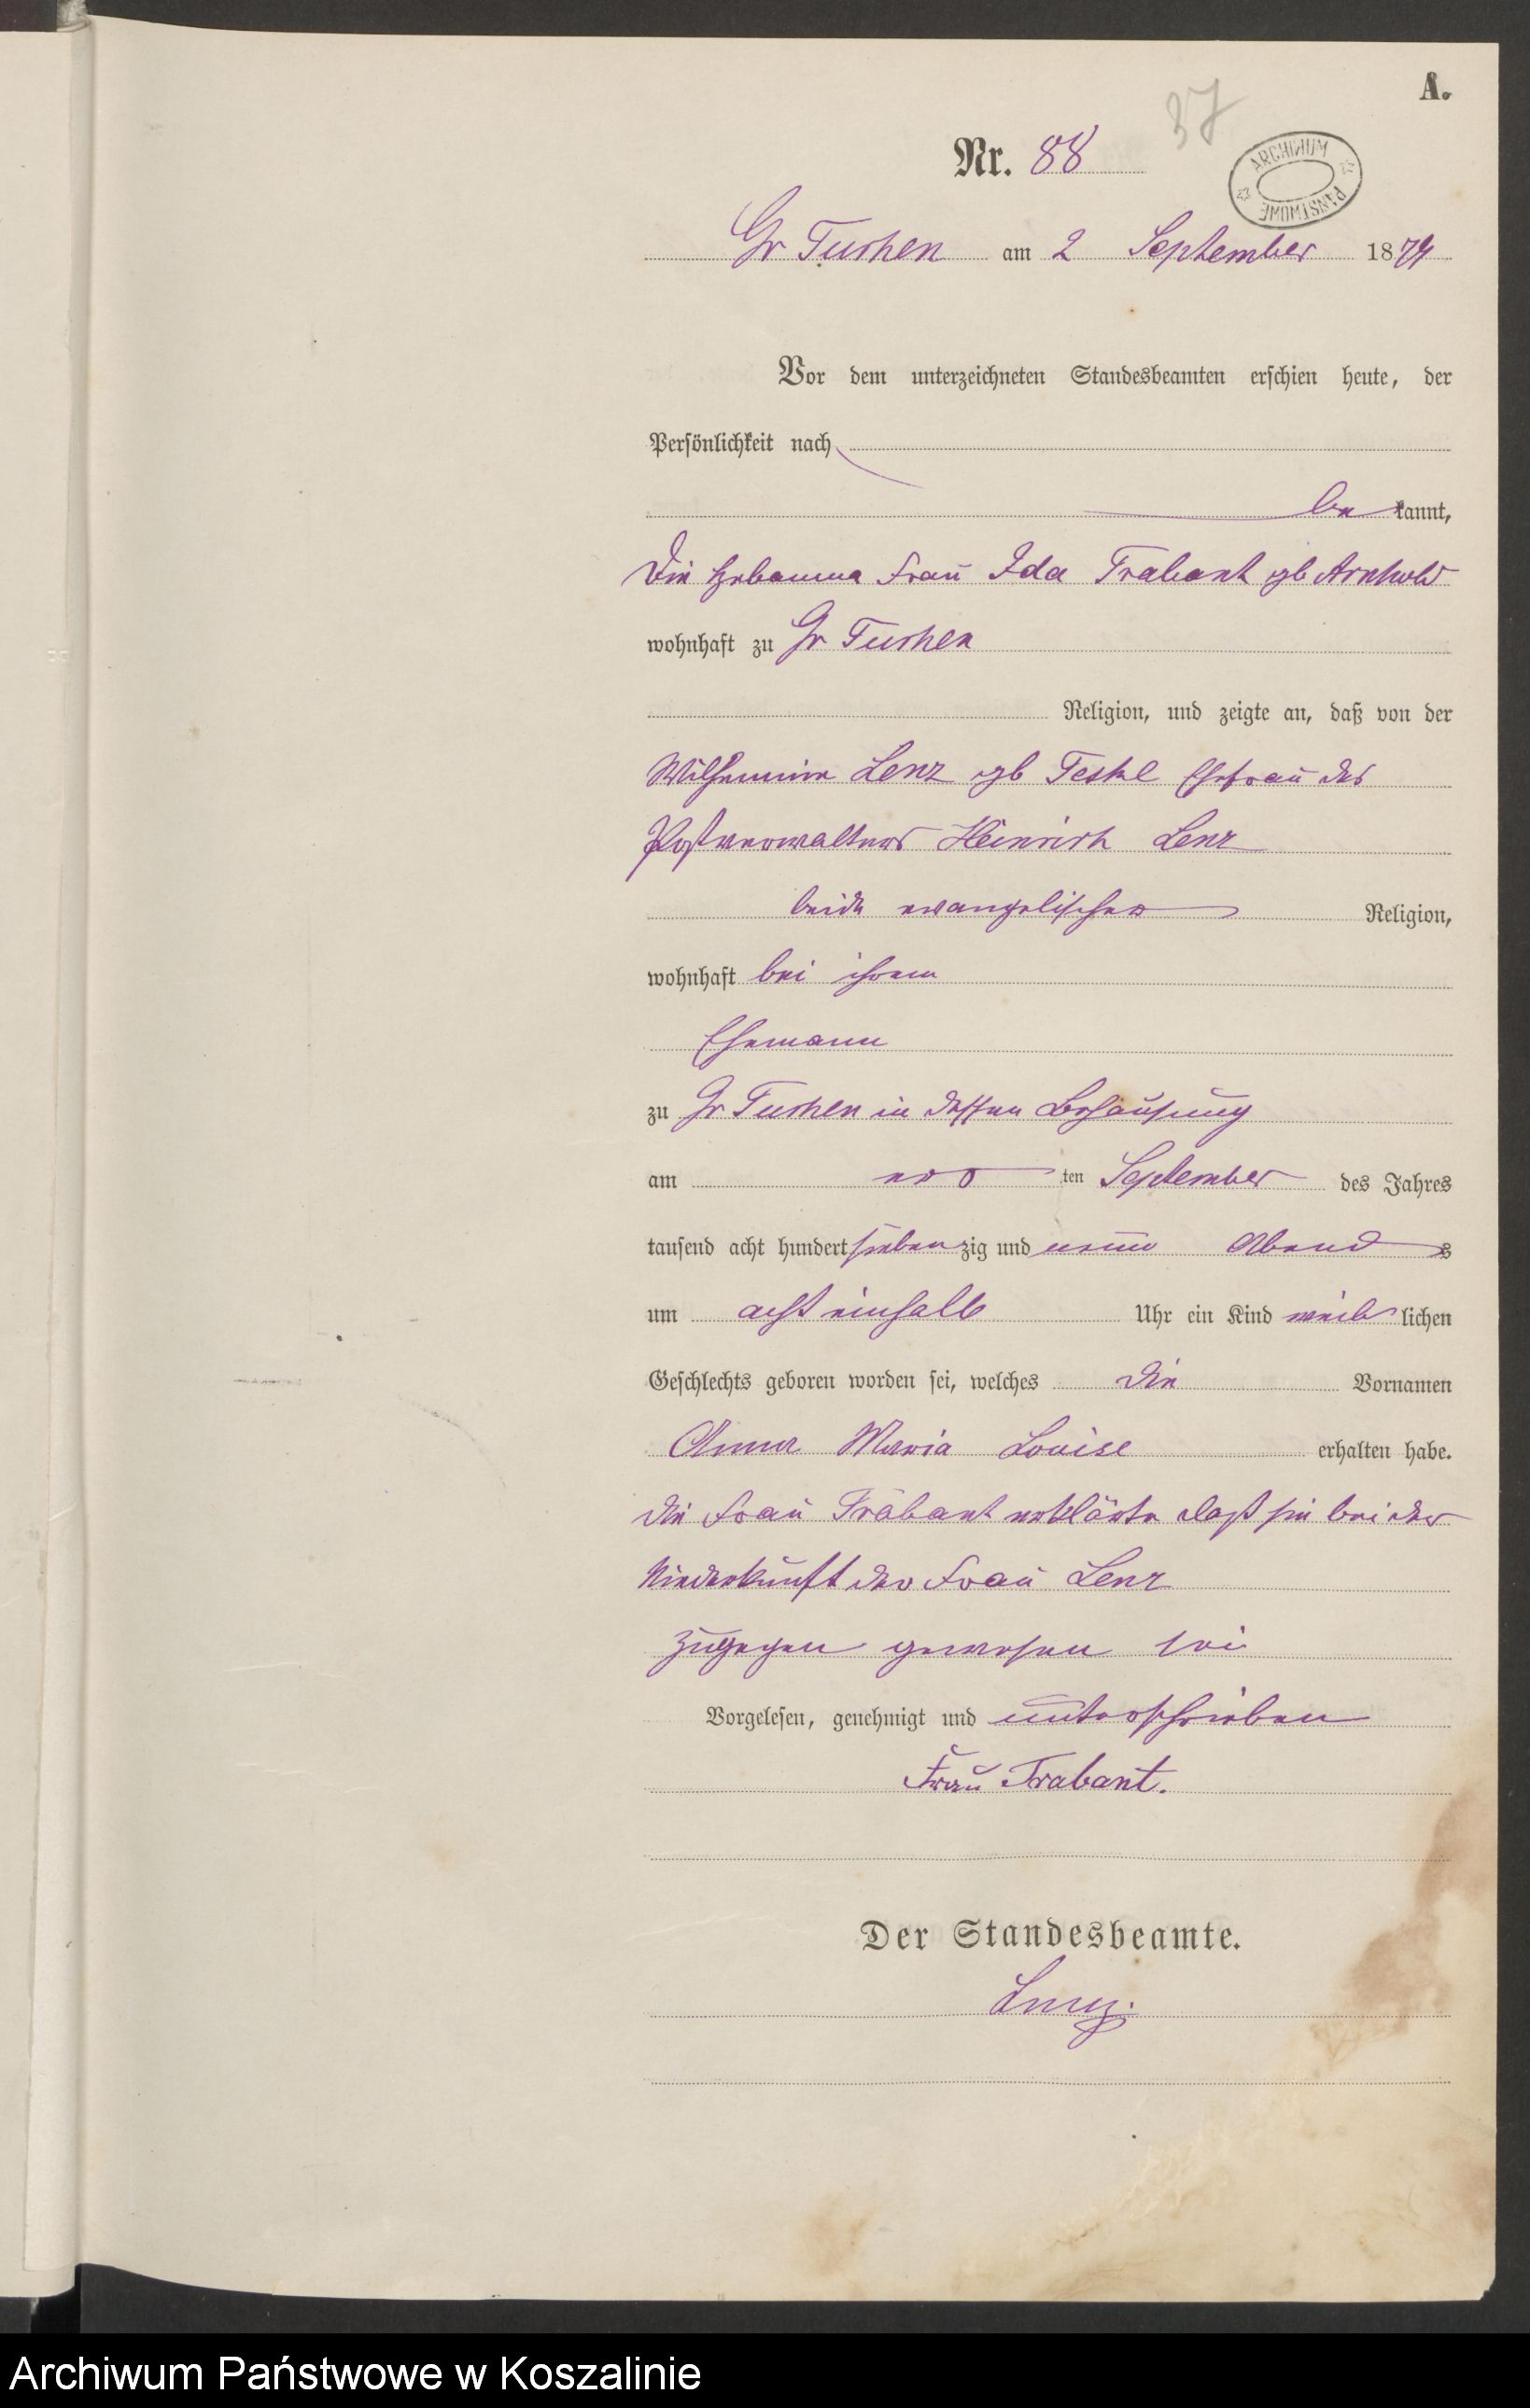 A.
37
Nr. 88
ARCHIWUM PAŃSTWOWE
Gr Tuchen am 2 September 1879
Vor dem unterzeichneten Standesbeamten erschien heute, der
Persönlichkeit nach
be kannt,
Die Hebamme Frau Ida Trabant gb Arnhold
wohnhaft zu Gr Tuchen
Religion, und zeigte an, daß von der
Wilhemine Lenz gb Ehefrau des
Postverwalters Heinrich Lenz
beide evangelischer Religion,
wohnhaft bei ihrem
Ehemann
zu Gr Tuchen in dessen Behausung
am ers ten September des Jahres
tausend acht hundert siebenzig und neun Abend s
um acht einhalb Uhr ein Kind weib lichen
Geschlechts geboren worden sei, welches die Vornamen
Anna Maria Louise erhalten habe.
Die Frau Trabant erklärte daß sie bei der
Niederkunft der Frau Lenz
zugegen gewesen sei
Vorgelesen, genehmigt und unterschrieben
Frau Trabant.
Der Standesbeamte.
Lenz.
Archiwum Państwowe w Koszalinie